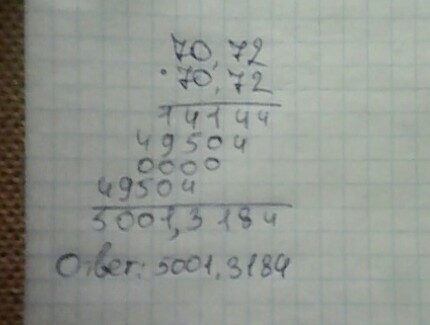 70,72
·70,72
14144
49504
0000
49504
5001,3184
Ответ: 5001,3184